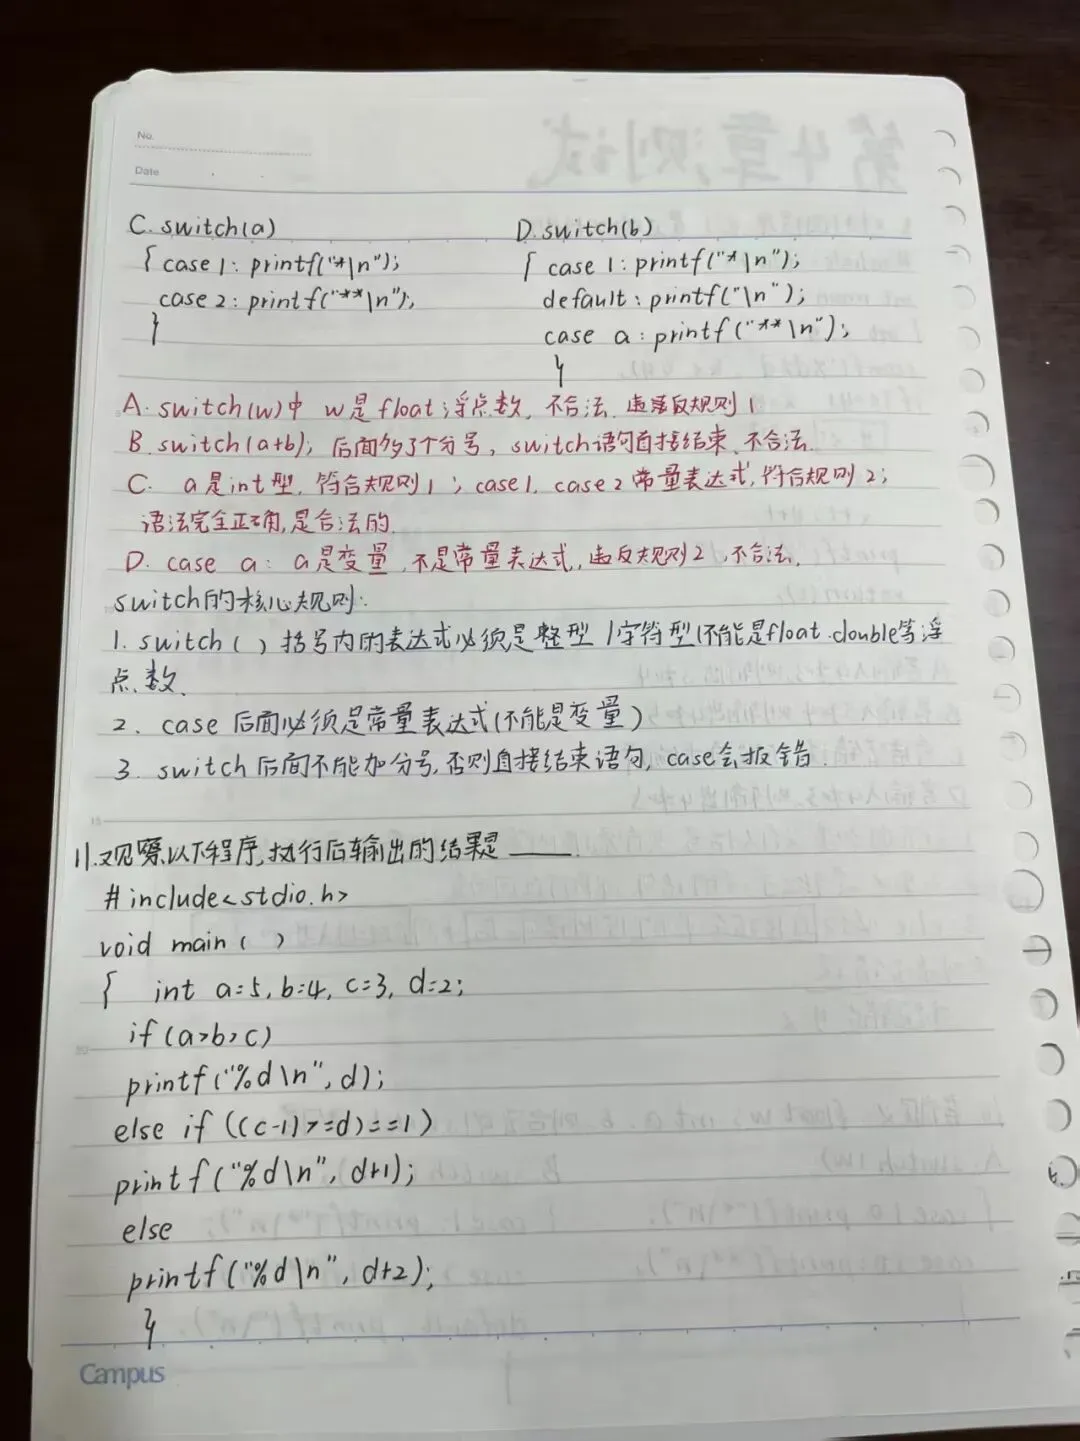 No.
Date
C. switch(a)
{ case 1: printf("*\n");
case 2: printf("**\n");
}
D. switch(b)
{ case 1: printf("*\n");
default: printf("\n");
case a: printf("**\n");
}
A. switch(w)中 w是float浮点数, 不合法. 违反规则1
B. switch(a+b); 后面多了个分号, switch语句直接结束, 不合法.
C. a是int型, 符合规则1; case1, case2常量表达式, 符合规则2;
语法完全正确, 是合法的.
D. case a: a是变量, 不是常量表达式, 违反规则2, 不合法.
switch的核心规则:
1. switch( ) 括号内的表达式必须是整型/字符型(不能是float.double等浮
点数.
2. case 后面必须是常量表达式(不能是变量)
3. switch后面不能加分号, 否则直接结束语句, case会报错.
11.观察以下程序, 执行后输出的结果是 ____.
#include<stdio.h>
void main( )
{ int a=5, b=4, c=3, d=2;
if(a>b>c)
printf("%d\n", d);
else if((c-1)>=d)==1)
printf("%d\n", d+1);
else
printf("%d\n", d+2);
}
Campus